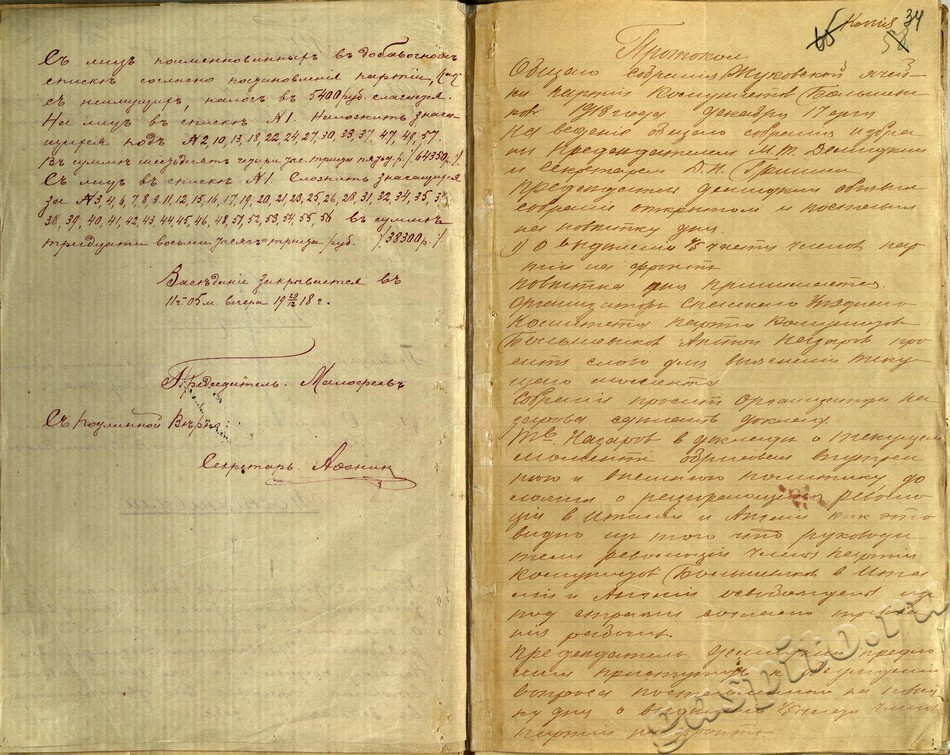 Съ лицъ поименнованныхъ въ добавочномъ
спискѣ согласно постановленія партіи, какъ
съ неимущихъ, налогъ въ 5400 руб. слагается.
На лицъ въ спискѣ №1. Наложить знача-
щихся подъ №2, 10, 13, 18, 22, 24, 27, 30, 33, 37, 47, 49, 57,
въ суммѣ шестьдесятъ четыре тыс. триста пятьд. р. /64350 р./
Съ лицъ въ спискѣ №1. Сложить значащихся
за №3, 4, 6, 7, 8, 9, 11, 12, 15, 16, 17, 19, 20, 21, 23, 25, 26, 28, 31, 32, 34, 35,
38, 39, 40, 41, 42, 43, 44, 45, 46, 48, 51, 52, 53, 54, 55, 56 въ суммѣ
тридцати восьми тысячъ триста руб. /38300 р./
Засѣданіе закрывается въ
11 ч. 05 м. вечера 19 18 г.
Предсѣдатель. Малофеевъ
Съ подлинной вѣрно:
Секретарь. Афонин
Копия 34
Протокол
Общаго собрания Жуковской ячей-
ки партии Комунистов (Большеви-
ков 1918 года декабря 17 дня
На ведение общаго собрания избра-
ны Председателем М. Т. Демидкин
и Секретарем Д. Н. Гришин
Председатель Демидкин объявил
собрание открытом и поставил
на повестку дня.
1) О выделении 1/5 части членов пар-
тии на фронт
повестка дня принимается.
Организатор Спаскаго Уезднаго
Комитета парти Комунистов
Большевиков Антон Назаров про-
сит слово для выяснения теку-
щего момента
Собрание просит Организатора На-
зарова сделать доклад
Тов. Назаров в докладе о текущем
моменте обрисовал внутрен-
нюю и внешнюю политику до-
ложил о революци-
ции в Италии и Англии как это
видно из того что руководи-
тели революции члены партии
Комунистов (Большевиков в Ита-
лии и Англии освобождены из
под стражи согласно требова-
ния рабочих.
Председатель Демидкин предло-
жил приступить к обсуждению
вопроса поставленной на повест-
ку дня о выделении 1/5 части членов
партии на фронт
guspito.ru